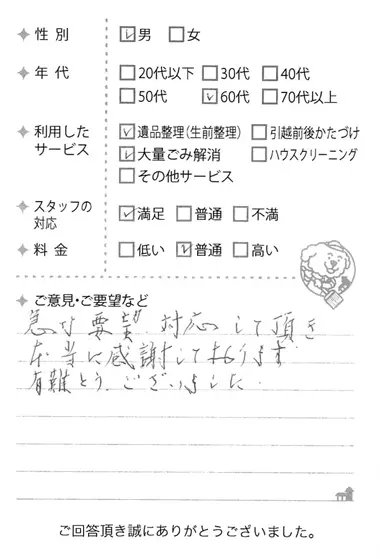 性別 ☑男 ☐女
年代 ☐20代以下 ☐30代 ☐40代
☐50代 ☑60代 ☐70代以上
利用した ☑遺品整理(生前整理) ☐引越前後かたづけ
サービス ☑大量ごみ解消 ☐ハウスクリーニング
☐その他サービス
スタッフの対応 ☑満足 ☐普通 ☐不満
料金 ☐低い ☑普通 ☐高い
ご意見・ご要望など
急な要望、対応して頂き
本当に感謝しております
有難とうございました。
ご回答頂き誠にありがとうございました。